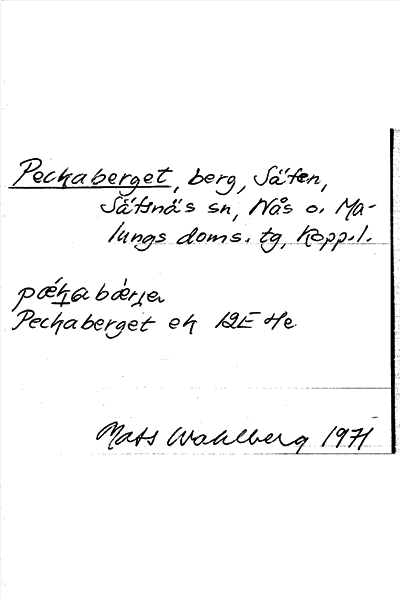 Peckaberget, berg, Säfen,
Säfsnäs sn, Nås o. Ma-
lungs doms. tg, Kopp.l.
Peckaberget ek 12E 4e
Mats Wahlberg 1971